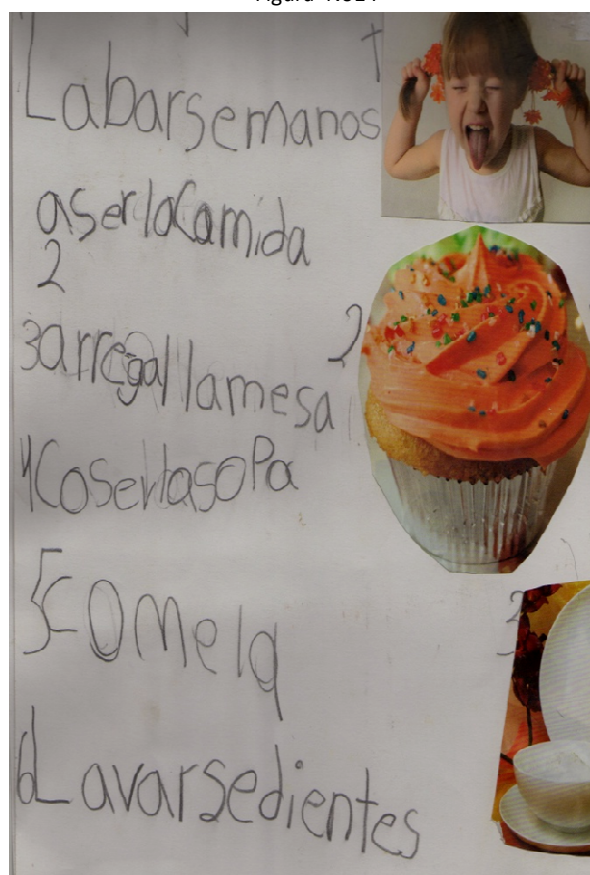 Labarsemanos
aserlaCamida
2
3arregallamesa
2
4Coserlasopa
5Comela
6Lavarsedientes